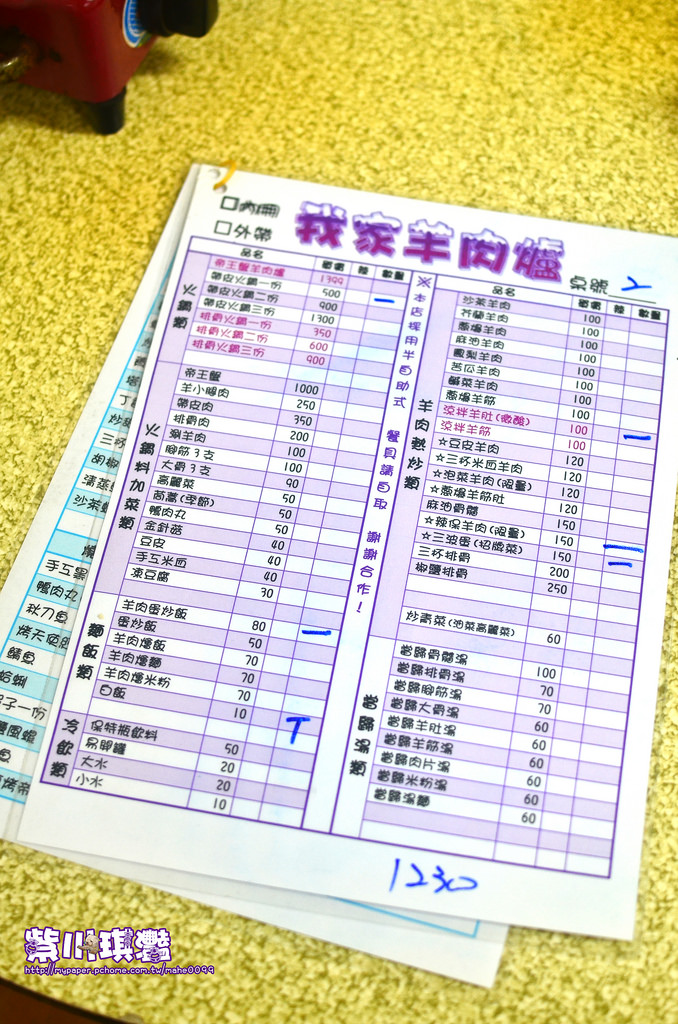 □內用
□外帶
我家羊肉爐
桌號
品名 價格 數量
火鍋類
帝王蟹羊肉爐 1399
帶皮火鍋一份 500
帶皮火鍋二份 900
帶皮火鍋三份 1300
排骨火鍋一份 350
排骨火鍋二份 600
排骨火鍋三份 900
火鍋料加菜類
帝王蟹 1000
羊小腸肉 250
帶皮肉 350
排骨肉 200
涮羊肉 100
腳筋3支 100
大骨3支 90
高麗菜 50
茼蒿(季節) 50
鴨肉丸 50
金針菇 40
豆皮 40
手工米血 40
凍豆腐 30
麵飯類
羊肉蛋炒飯 80
蛋炒飯 50
羊肉燴飯 70
羊肉燴麵 70
羊肉燴米粉 70
白飯 10
T
冷飲類
保特瓶飲料 50
易開罐 20
大水 20
小水 10
※本店採用半自助式 餐具請自取 謝謝合作!
品名 價格 數量
羊肉熱炒類
沙茶羊肉 100
芥蘭羊肉 100
蔥爆羊肉 100
麻油羊肉 100
鳳梨羊肉 100
苦瓜羊肉 100
鹹菜羊肉 100
蔥爆羊筋 100
涼拌羊肚(微酸) 100
涼拌羊筋 100
☆豆皮羊肉 120
☆三杯米血羊肉 120
☆泡菜羊肉(限量) 120
☆蔥爆羊筋肚 120
麻油骨髓 150
☆辣保羊肉(限量) 150
☆三波蛋(招牌菜) 150
三杯排骨 200
椒鹽排骨 250
炒青菜(油菜高麗菜) 60
當歸湯類
當歸骨髓湯 100
當歸排骨湯 70
當歸腳筋湯 70
當歸大骨湯 60
當歸羊肚湯 60
當歸羊筋湯 60
當歸肉片湯 60
當歸米粉湯 60
當歸湯麵 60
1230
手工
鴨肉丸
秋刀魚
烤天使
鯖魚
沙茶
三杯
胡椒
清蒸
紫川琪灩
http://mypaper.pchome.com.tw/mahe0099